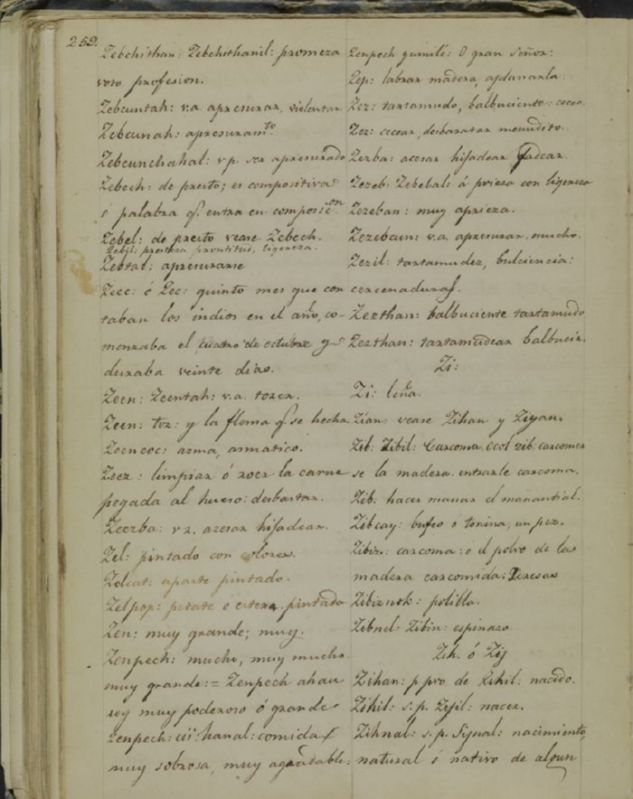 252.
Zebchithan: Zebchithanil: promeza
voto profesion.
Zebcuntah: v.a. apresurar, violentar
Zebcunah: apresuram.to
Zebcunchahal: v p. ser apresurado
Zebech: de presto; es compositiva
ó palabra q.e entra en composic.on
Zebel: de presto vease Zebech.
Zebil: presteza prontitud, ligereza.
Zebtal: apresurarse
Zec: ó Zec: quinto mes que con
taban los indios en el año, co-
menzaba el cuatro de octubre y
duraba veinte dias.
Zeen: Zeentah: v.a. tozer.
Zeen: toz: y la flema q.e se hecha
Zeencoc: asma, asmatico.
Zeez: limpiar ó roer la carne
pegada al hueso: desbastar.
Zeezba: v r. acezar hijadear.
Zel: pintado con colores.
Zelcat: aparte pintado.
Zelpop: petate ó estera pintado
Zen: muy grande; muy.
Zenpech: mucho, muy mucho
muy grande: = Zenpech ahau
rey muy poderoso ó grande
Zenpech: cii: hanal: comida
muy sobrosa, muy agradable:
Zenpech yumilé: O gran Señor:
Zep: labrar madera, aplanarla
Zez: tartamudo, balbuciente: ceceo.
Zez: cecear, desbaratar menudito.
Zezba: acezar hijadear
Zezeb: Zezebal: á prieza con ligereza
Zezeban: muy aprieza.
Zezebcun: v.a. apresurar mucho.
Zezil: tartamudez, bulciencia:
cercenaduras.
Zezthan: balbuciente tartamudo
Zezthan: tartamudear balbucir.
Zi:
Zi: leña.
Zian: vease Zihan y Ziyan.
Zib: Zibil: Carcoma, ocol zib carcomer
se la madera. entrarle carcoma.
Zib: hacer manar el manantial.
Zibcay: bufeo ó tonina, un pez.
Zibiz: carcoma: ó el polvo de las
madera carcomida:
Zibiznok: polilla.
Zibnel: Zibin: espinazo
Zih. ó Zij
Zihan: p pro. de Zihil: nacido.
Zihil: s.p. Zijil: nacer.
Zihnal: s.p. Sijnal: nacimiento,
natural ó nativo de algun